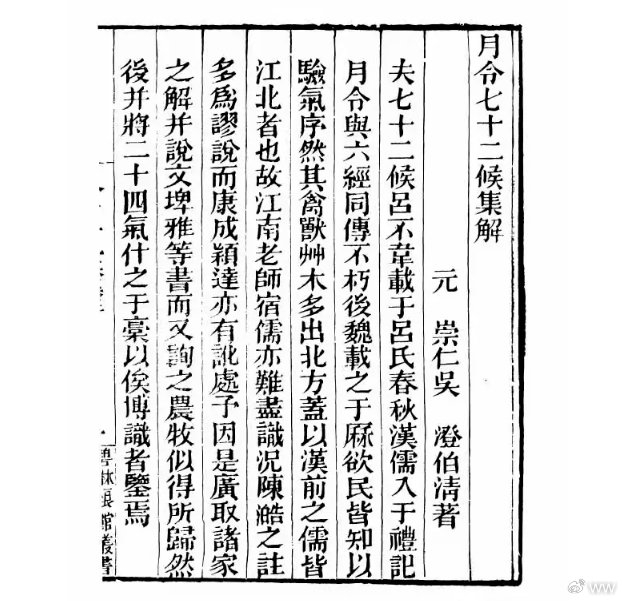 月令七十二候集解
元　崇仁吳　澄伯淸著
夫七十二候呂不韋載于呂氏春秋漢儒入于禮記
月令與六經同傳不朽後魏載之于厤欲民皆知以
驗氣序然其禽獸艸木多出北方蓋以漢前之儒皆
江北者也故江南老師宿儒亦難盡識况陳澔之註
多爲謬說而康成穎達亦有訛處予因是廣取諸家
之解并說文埤雅等書而又詢之農牧似得所歸然
後并將二十四氣什之于槀以俟博識者鑒焉
叢書
VW